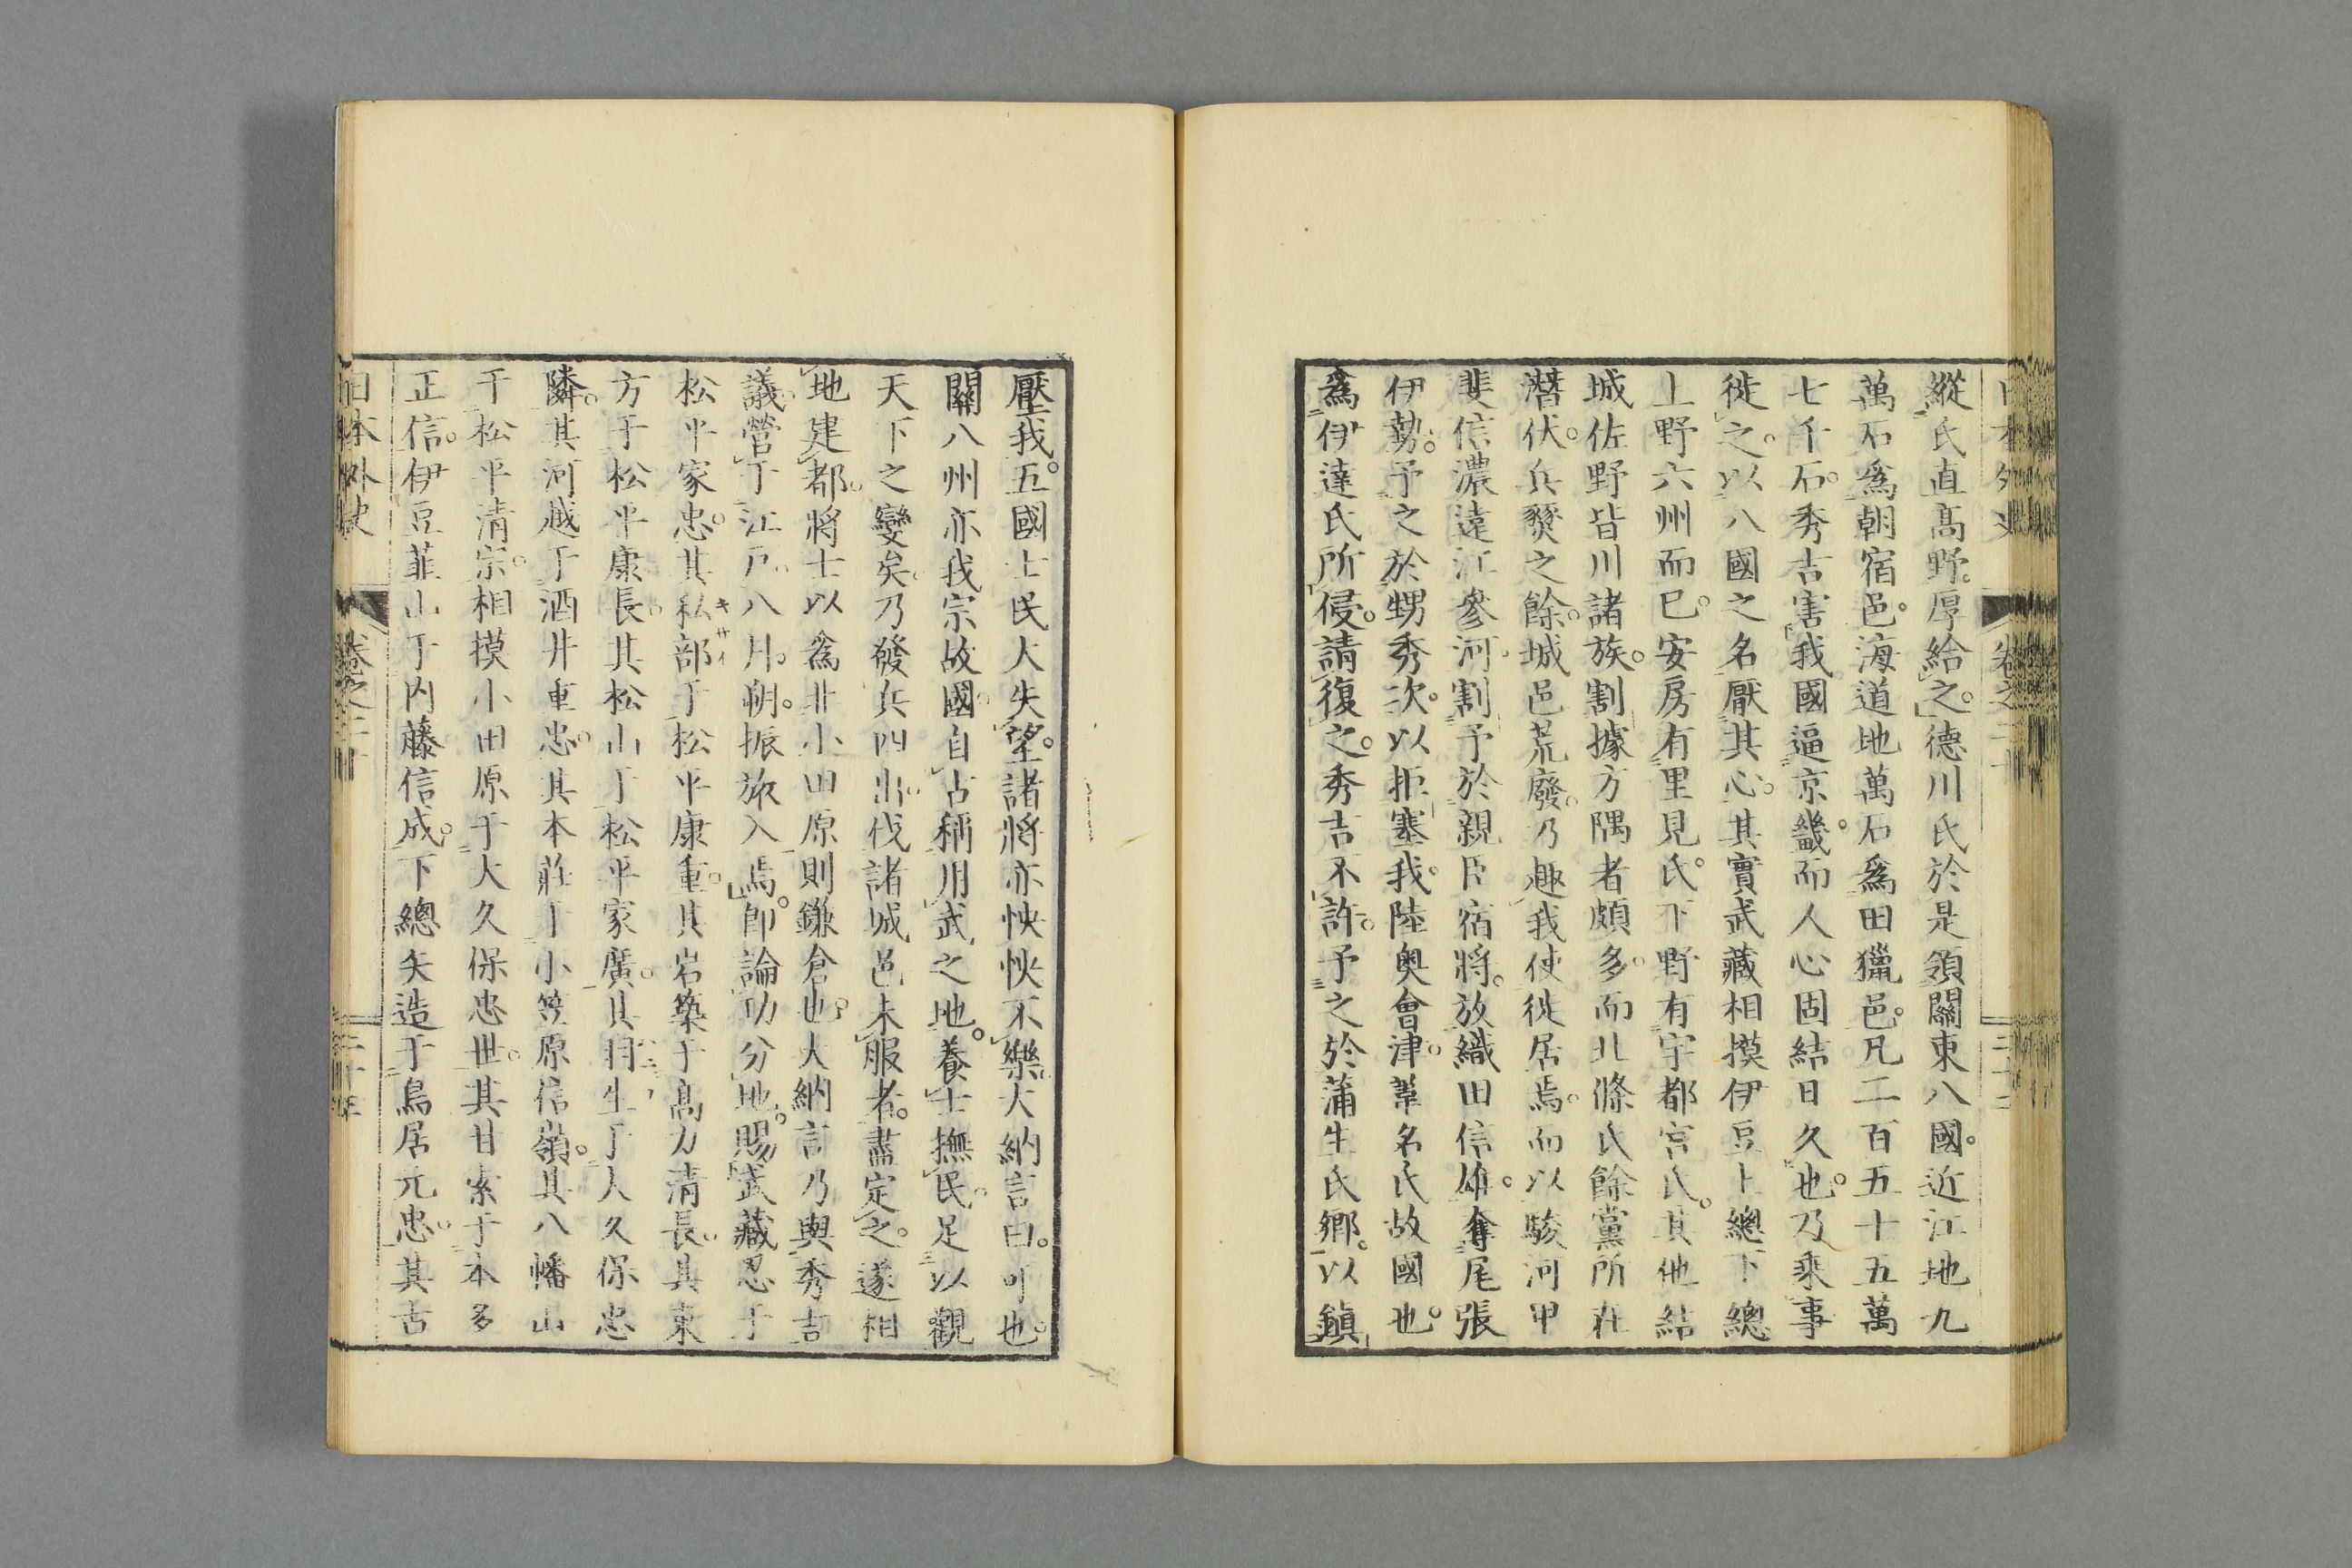 縱氏直高野。厚給之。德川氏於是領關東八國。近江地九
萬石爲朝宿邑。海道地萬石爲田獵邑。凡二百五十五萬
七千石。秀吉害我國逼京畿。而人心固結日久也。乃乘事
徙之。以八國之名厭其心。其實武藏相摸伊豆上總下總
上野六州而已。安房有里見氏。下野有宇都宮氏。其他結
城佐野皆川諸族。割據方隅者頗多。而北條氏餘黨所在
潛伏。兵燹之餘。城邑荒廢。乃趣我使徙居焉。而以駿河甲
斐信濃遠江參河。割予於親臣宿將。放織田信雄。奪尾張
伊勢。予之於甥秀次。以拒塞我。陸奧會津。葦名氏故國也。
爲伊達氏所侵。請復之。秀吉不許。予之於蒲生氏鄉。以鎭
壓我。五國士民大失望。諸將亦怏怏不樂。大納言曰。可也。
關八州亦我宗故國。自古稱用武之地。養士撫民。足以觀
天下之變矣。乃發兵四出。伐諸城邑未服者。盡定之。遂相
地建都。將士以爲非小田原則鎌倉也。大納言乃與秀吉
議。營于江戶。八月朔。振旅入焉。卽論功分地。賜武藏忍于
松平家忠。其私部于松平康重。其岩築于高力淸長。其東
方于松平康長。其松山于松平家廣。其羽生于大久保忠
隣。其河越于酒井重忠。其本莊于小笠原信嶺。其八幡山
于松平淸宗。相摸小田原于大久保忠世。其甘索于本多
正信。伊豆韮山于內藤信成。下總矢造于鳥居元忠。其古
日本外史 卷之二十